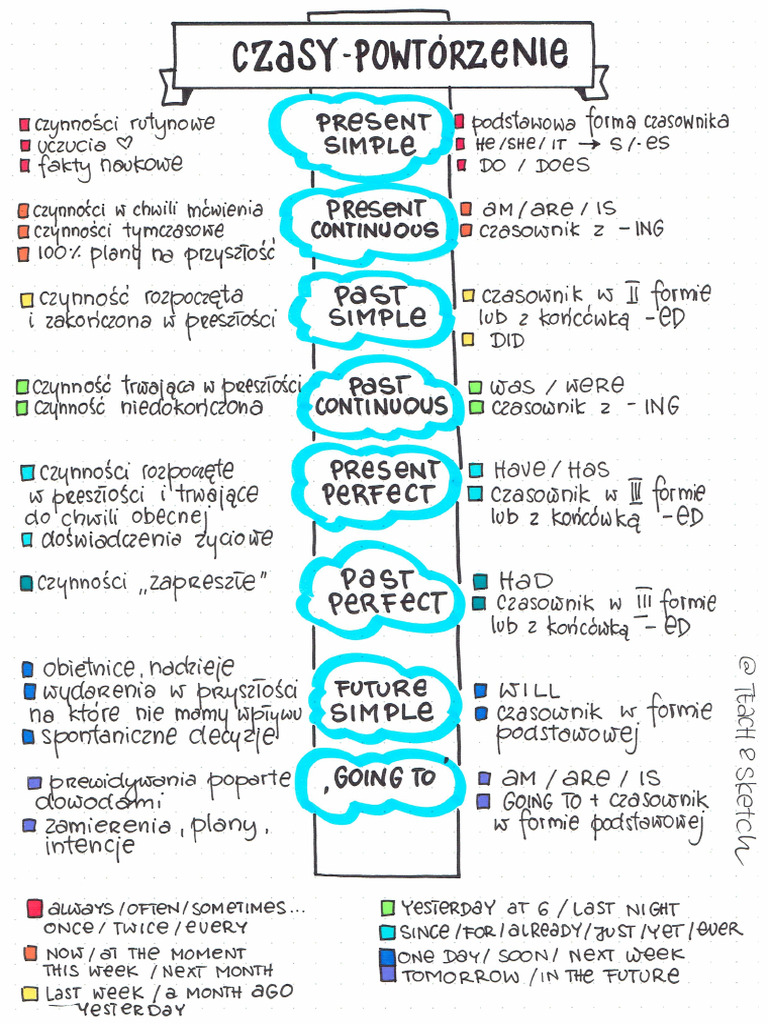 CZASY-POWTÓRZENIE
czynności rutynowe
uczucia ♡
fakty naukowe
PRESENT
SIMPLE
podstawowa forma czasownika
HE/SHE/IT → S/-ES
DO / DOES
czynności w chwili mówienia
czynności tymczasowe
100% plany na przyszłość
PRESENT
CONTINUOUS
AM/ARE/IS
czasownik z -ING
czynność rozpoczęta
i zakończona w przeszłości
PAST
SIMPLE
czasownik w II formie
lub z końcówką -ED
DID
czynność trwająca w przeszłości
czynność niedokończona
PAST
CONTINUOUS
WAS / WERE
czasownik z -ING
czynności rozpoczęte
w przeszłości i trwające
do chwili obecnej
doświadczenia życiowe
PRESENT
PERFECT
HAVE/HAS
czasownik w III formie
lub z końcówką -ED
czynności „zaprzeszłe"
PAST
PERFECT
HAD
czasownik w III formie
lub z końcówką -ED
obietnice, nadzieje
wydarzenia w przyszłości
na które nie mamy wpływu
spontaniczne decyzje
FUTURE
SIMPLE
WILL
czasownik w formie
podstawowej
przewidywania poparte
dowodami
zamierzenia, plany,
intencje
'GOING TO'
AM / ARE / IS
GOING TO + czasownik
w formie podstawowej
@TEACH&SKETCH
ALWAYS/OFTEN/SOMETIMES...
ONCE/TWICE/EVERY
NOW/AT THE MOMENT
THIS WEEK/NEXT MONTH
LAST WEEK/A MONTH AGO
YESTERDAY
YESTERDAY AT 6/LAST NIGHT
SINCE/FOR/ALREADY/JUST/YET/EVER
ONE DAY/SOON/NEXT WEEK
TOMORROW/IN THE FUTURE